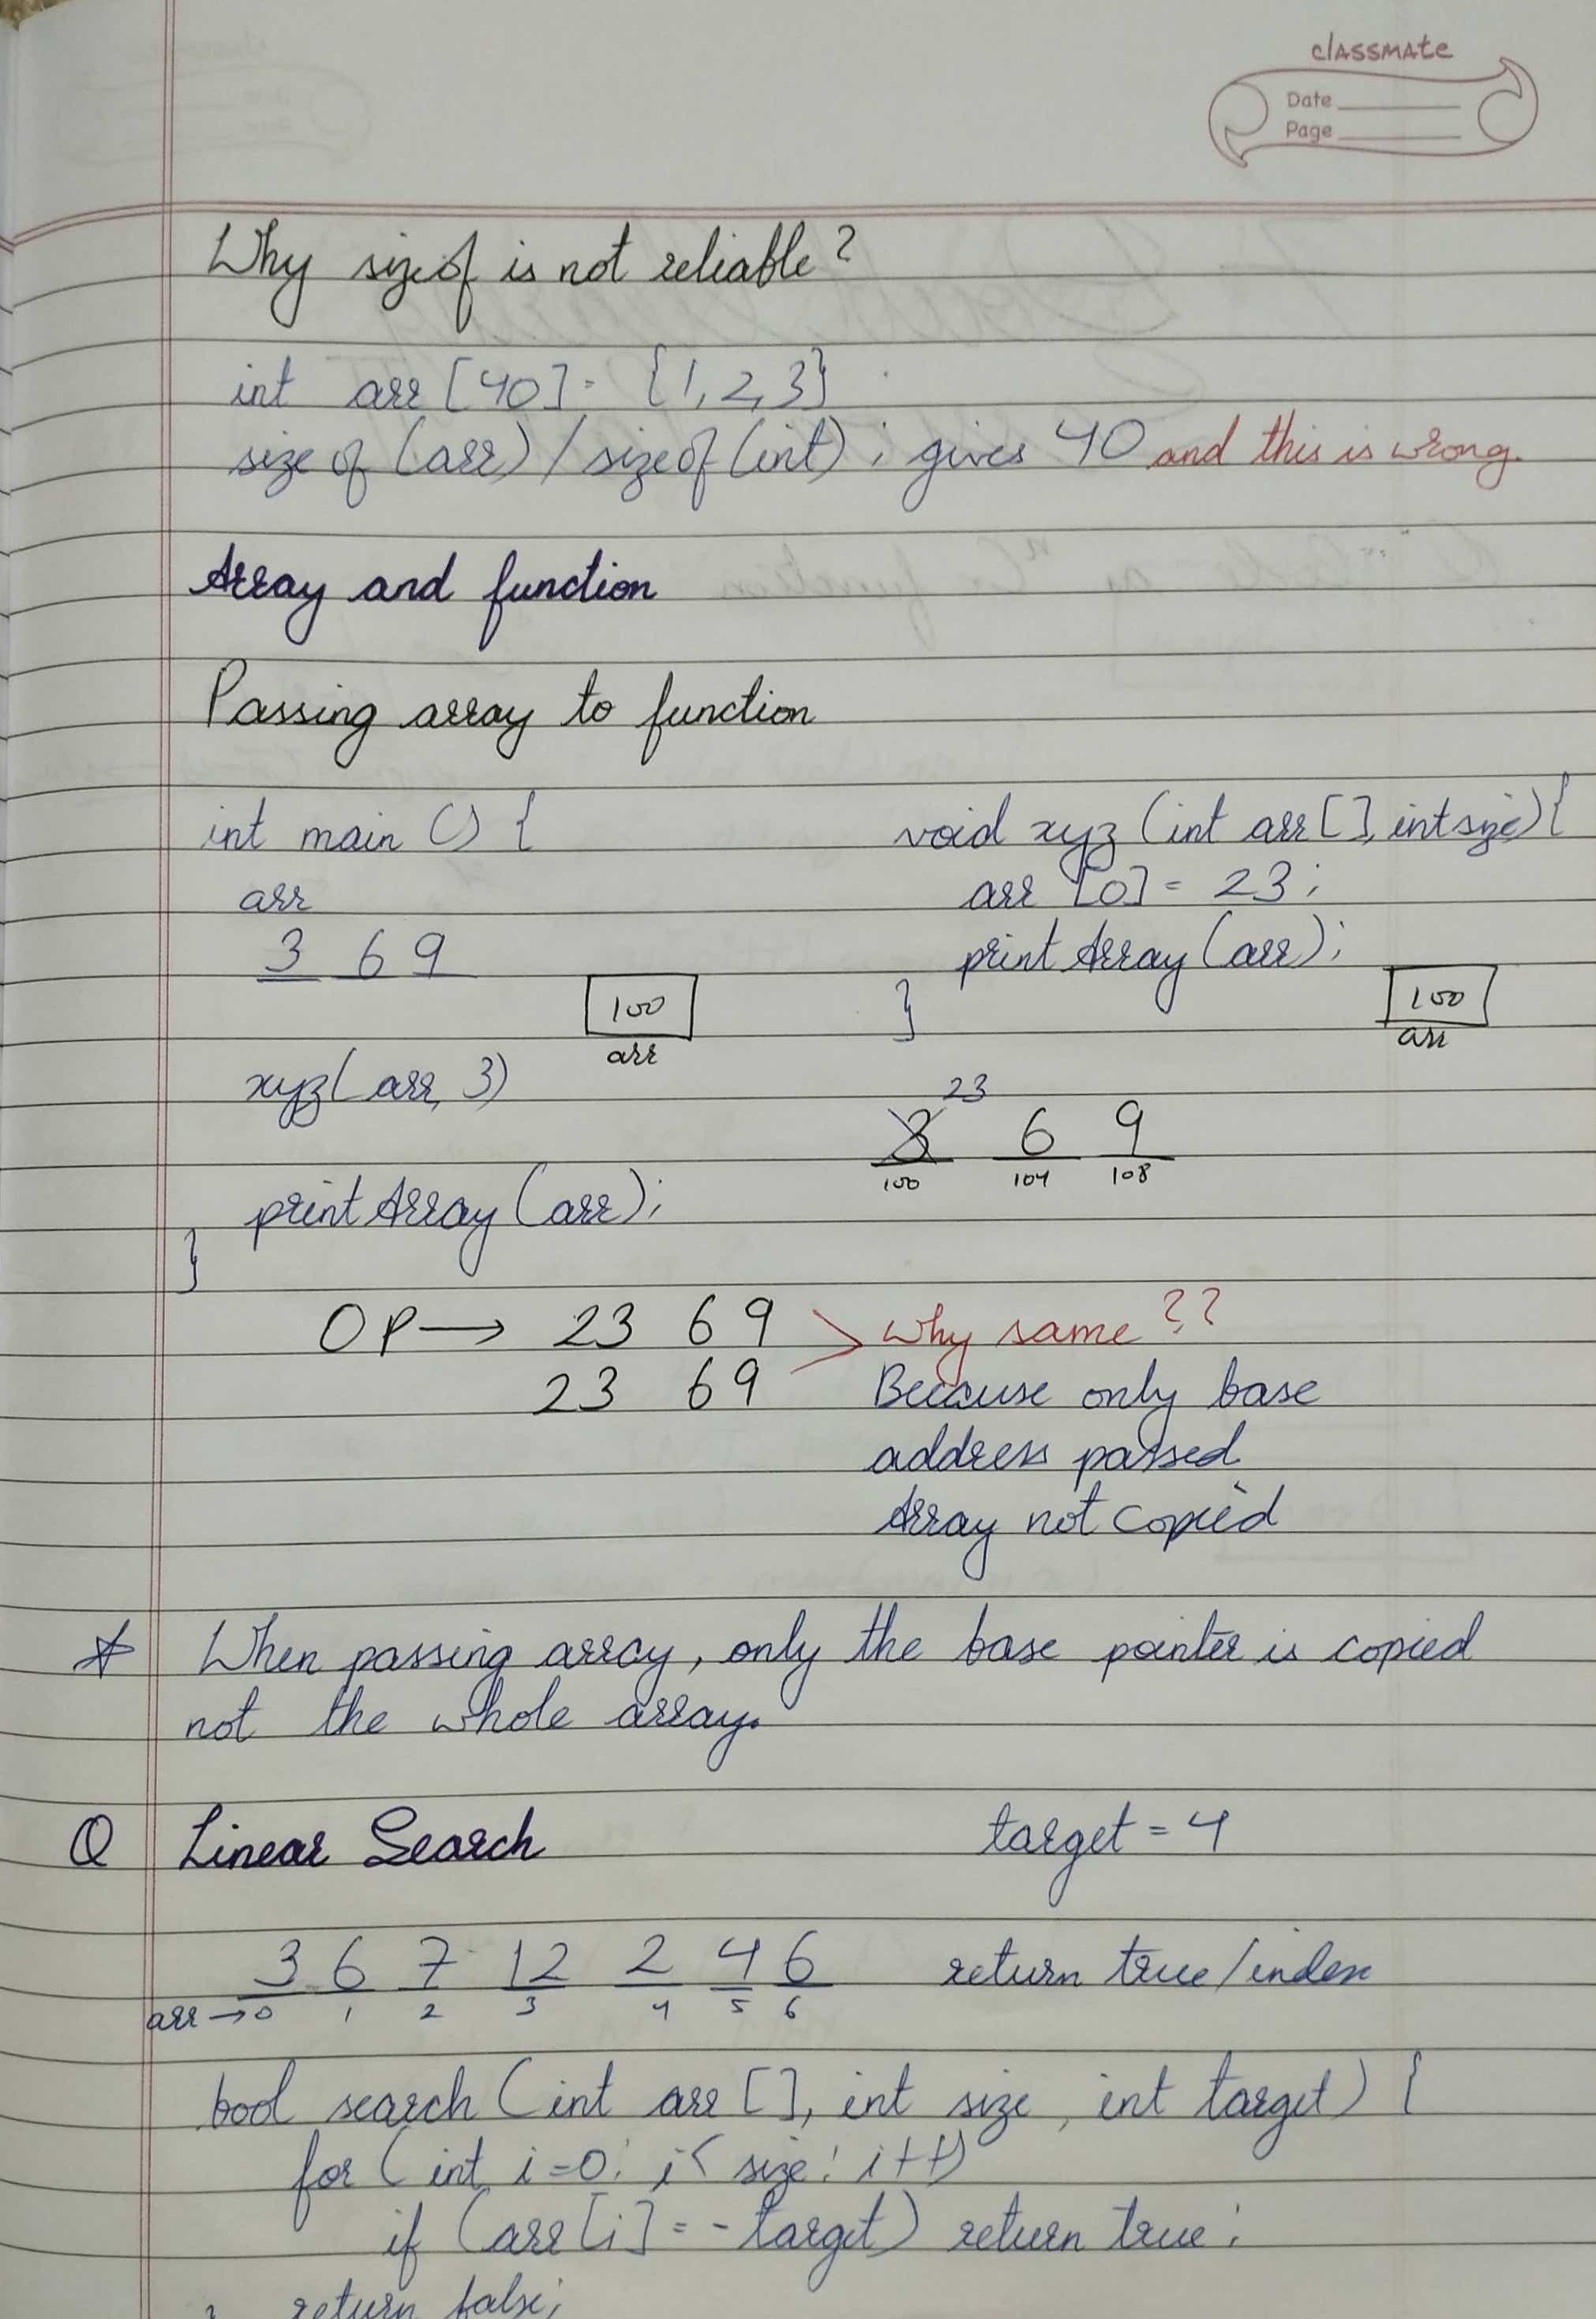 classmate
Date
Page
Why sizeof is not reliable?
int arr [40] = {1,2,3} ;
size of (arr) / size of (int) ; gives 40 and this is wrong.
Array and function
Passing array to function
int main () {
arr
3 6 9
100
arr
xyz( arr, 3)
print Array (arr);
}
void xyz (int arr [], int size) {
arr [0] = 23 ;
print Array (arr);
}
100
arr
23
3 6 9
100 104 108
OP → 23 6 9 > why same ??
23 6 9 Because only base
address passed
Array not copied
* When passing array, only the base pointer is copied
not the whole array.
Q Linear Search target = 4
3 6 7 12 2 4 6 return true/index
arr → 0 1 2 3 4 5 6
bool search (int arr [], int size, int target) {
for ( int i=0; i < size; i++)
if (arr [i] == target) return true ;
} return false;